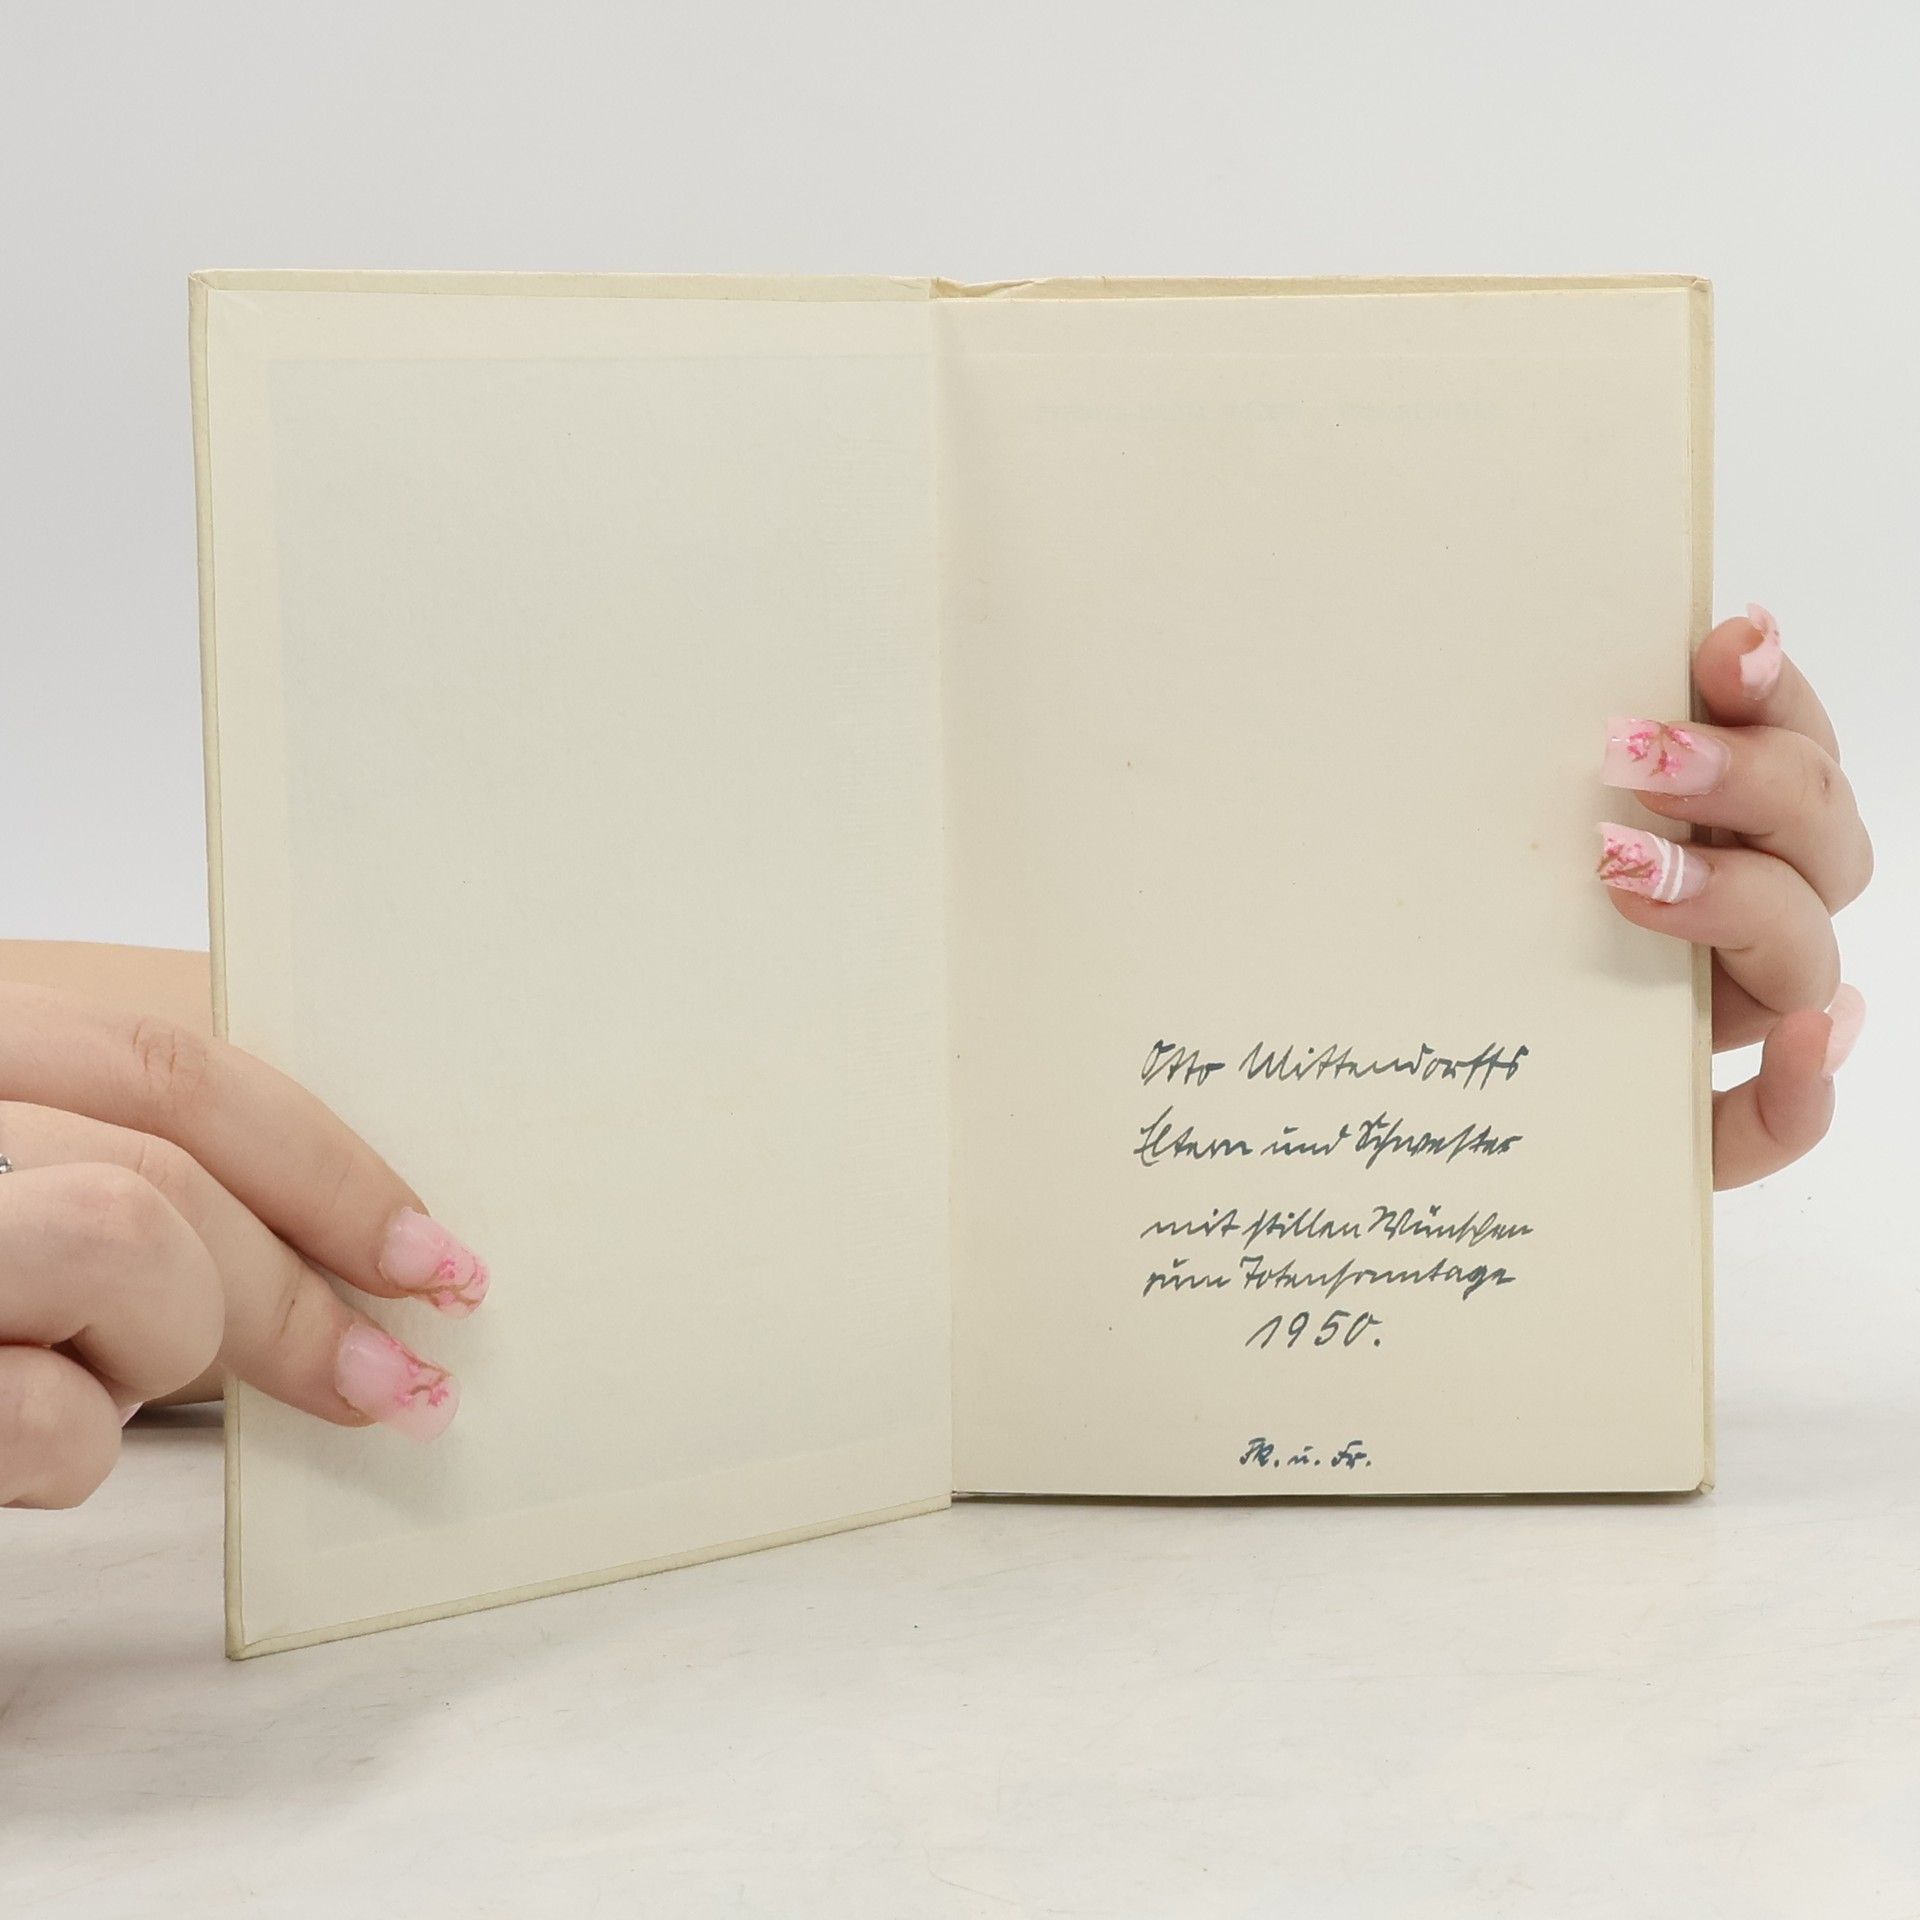 Otto Mittendorffs
Eltern und Schwester
mit stillen Wünschen
zum Totensonntage
1950.
Fk. u. Fr.